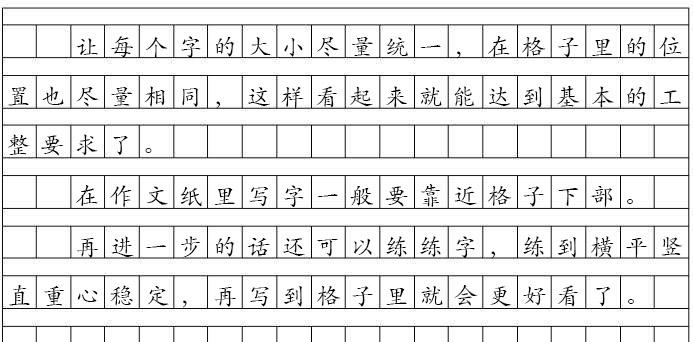 让每个字的大小尽量统一，在格子里的位
置也尽量相同，这样看起来就能达到基本的工
整要求了。
在作文纸里写字一般要靠近格子下部。
再进一步的话还可以练练字，练到横平竖
直重心稳定，再写到格子里就会更好看了。